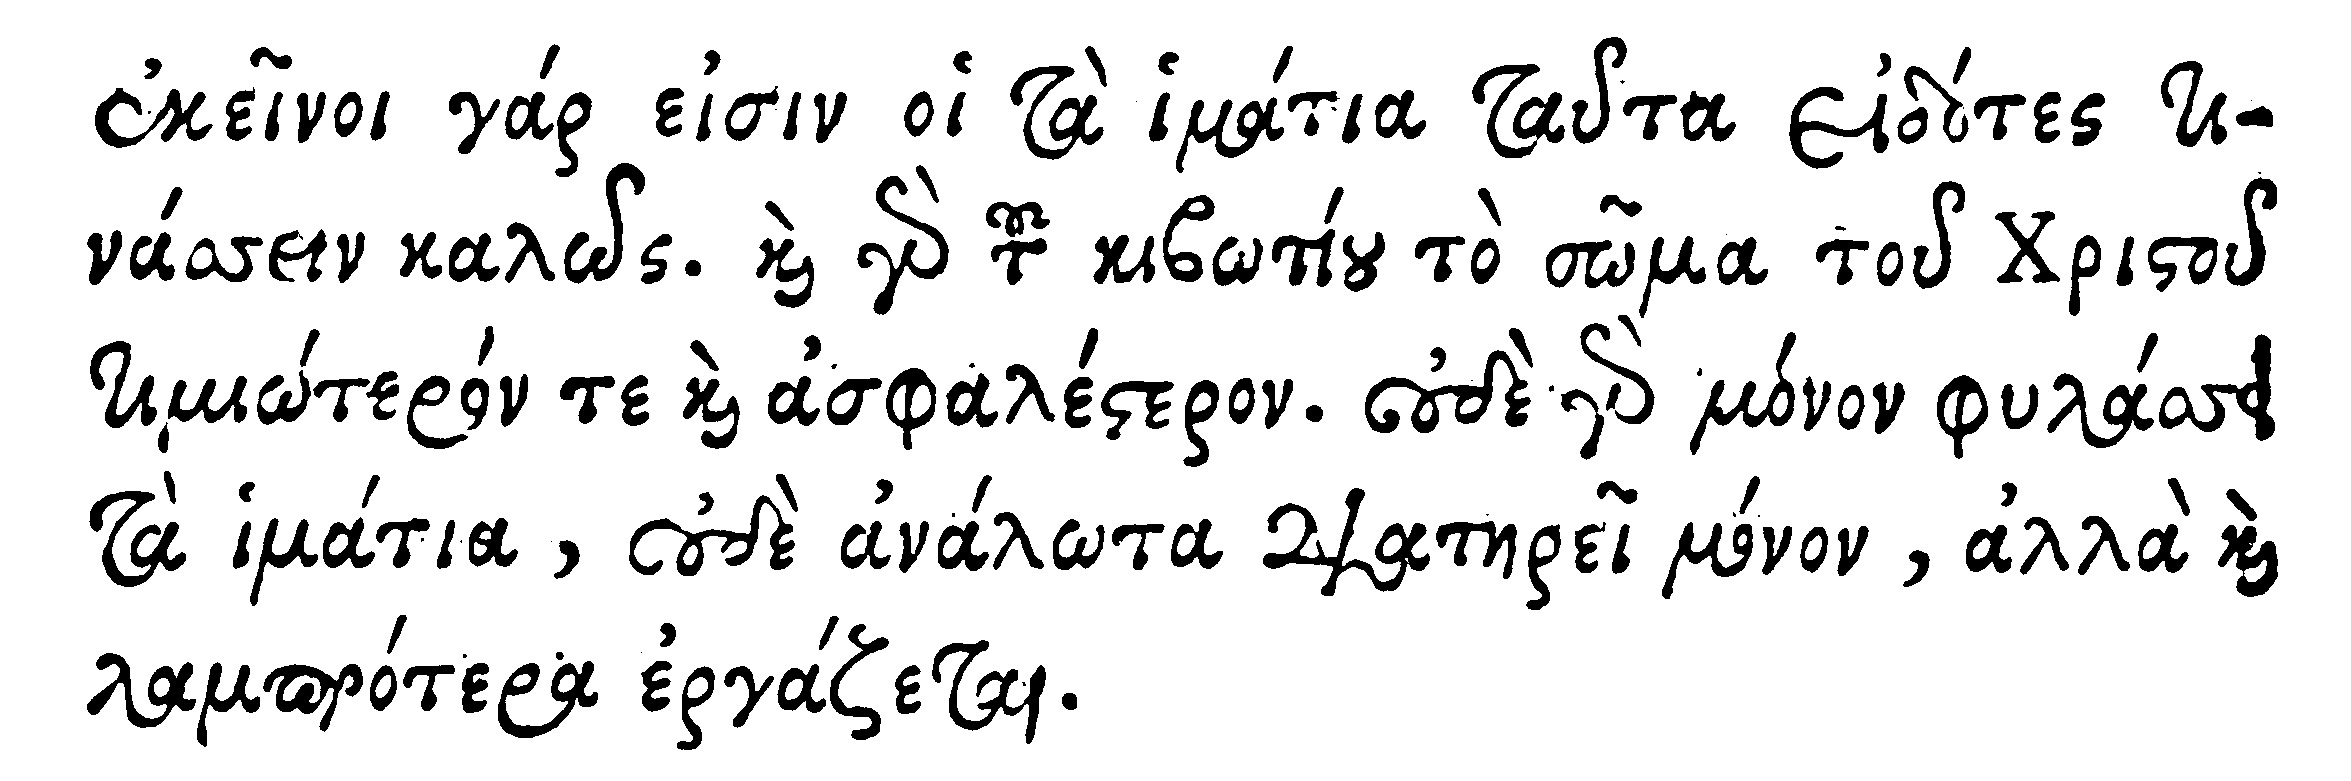 ἐκεῖνοι γάρ εἰσιν οἱ τὰ ἱμάτια ταῦτα εἰδότες τι-
νάσσειν καλῶς. καὶ γὰρ τοῦ κιβωτίου τὸ σῶμα τοῦ Χριστοῦ
τιμιώτερόν τε καὶ ἀσφαλέστερον. οὐδὲ γὰρ μόνον φυλάσσει
τὰ ἱμάτια, οὐδὲ ἀνάλωτα διατηρεῖ μόνον, ἀλλὰ καὶ
λαμπρότερα ἐργάζεται.